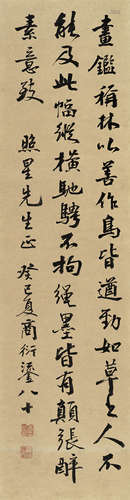 畫鑑稱林以善作鳥皆遒勁如草書人不
能及此幅縱橫馳騁不拘繩墨皆有顛張醉
素意致 照星先生正 癸巳夏商衍鎏八十